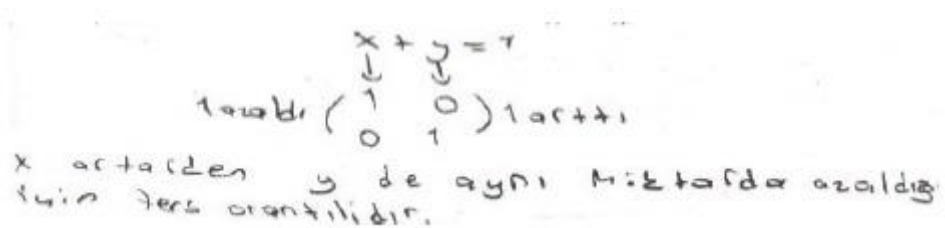 x + y = 1
↓ ↓
1 azaldı ( 1 0 ) 1 arttı
0 1
x artarken y de aynı miktarda azaldığı
için ters orantılıdır.